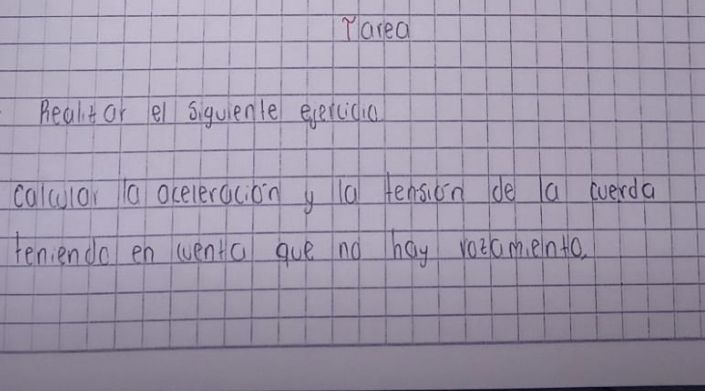 Tarea
Realizar el siguiente ejercicio
calcular la aceleración y la tensión de la cuerda
teniendo en cuenta que no hay rozamiento.